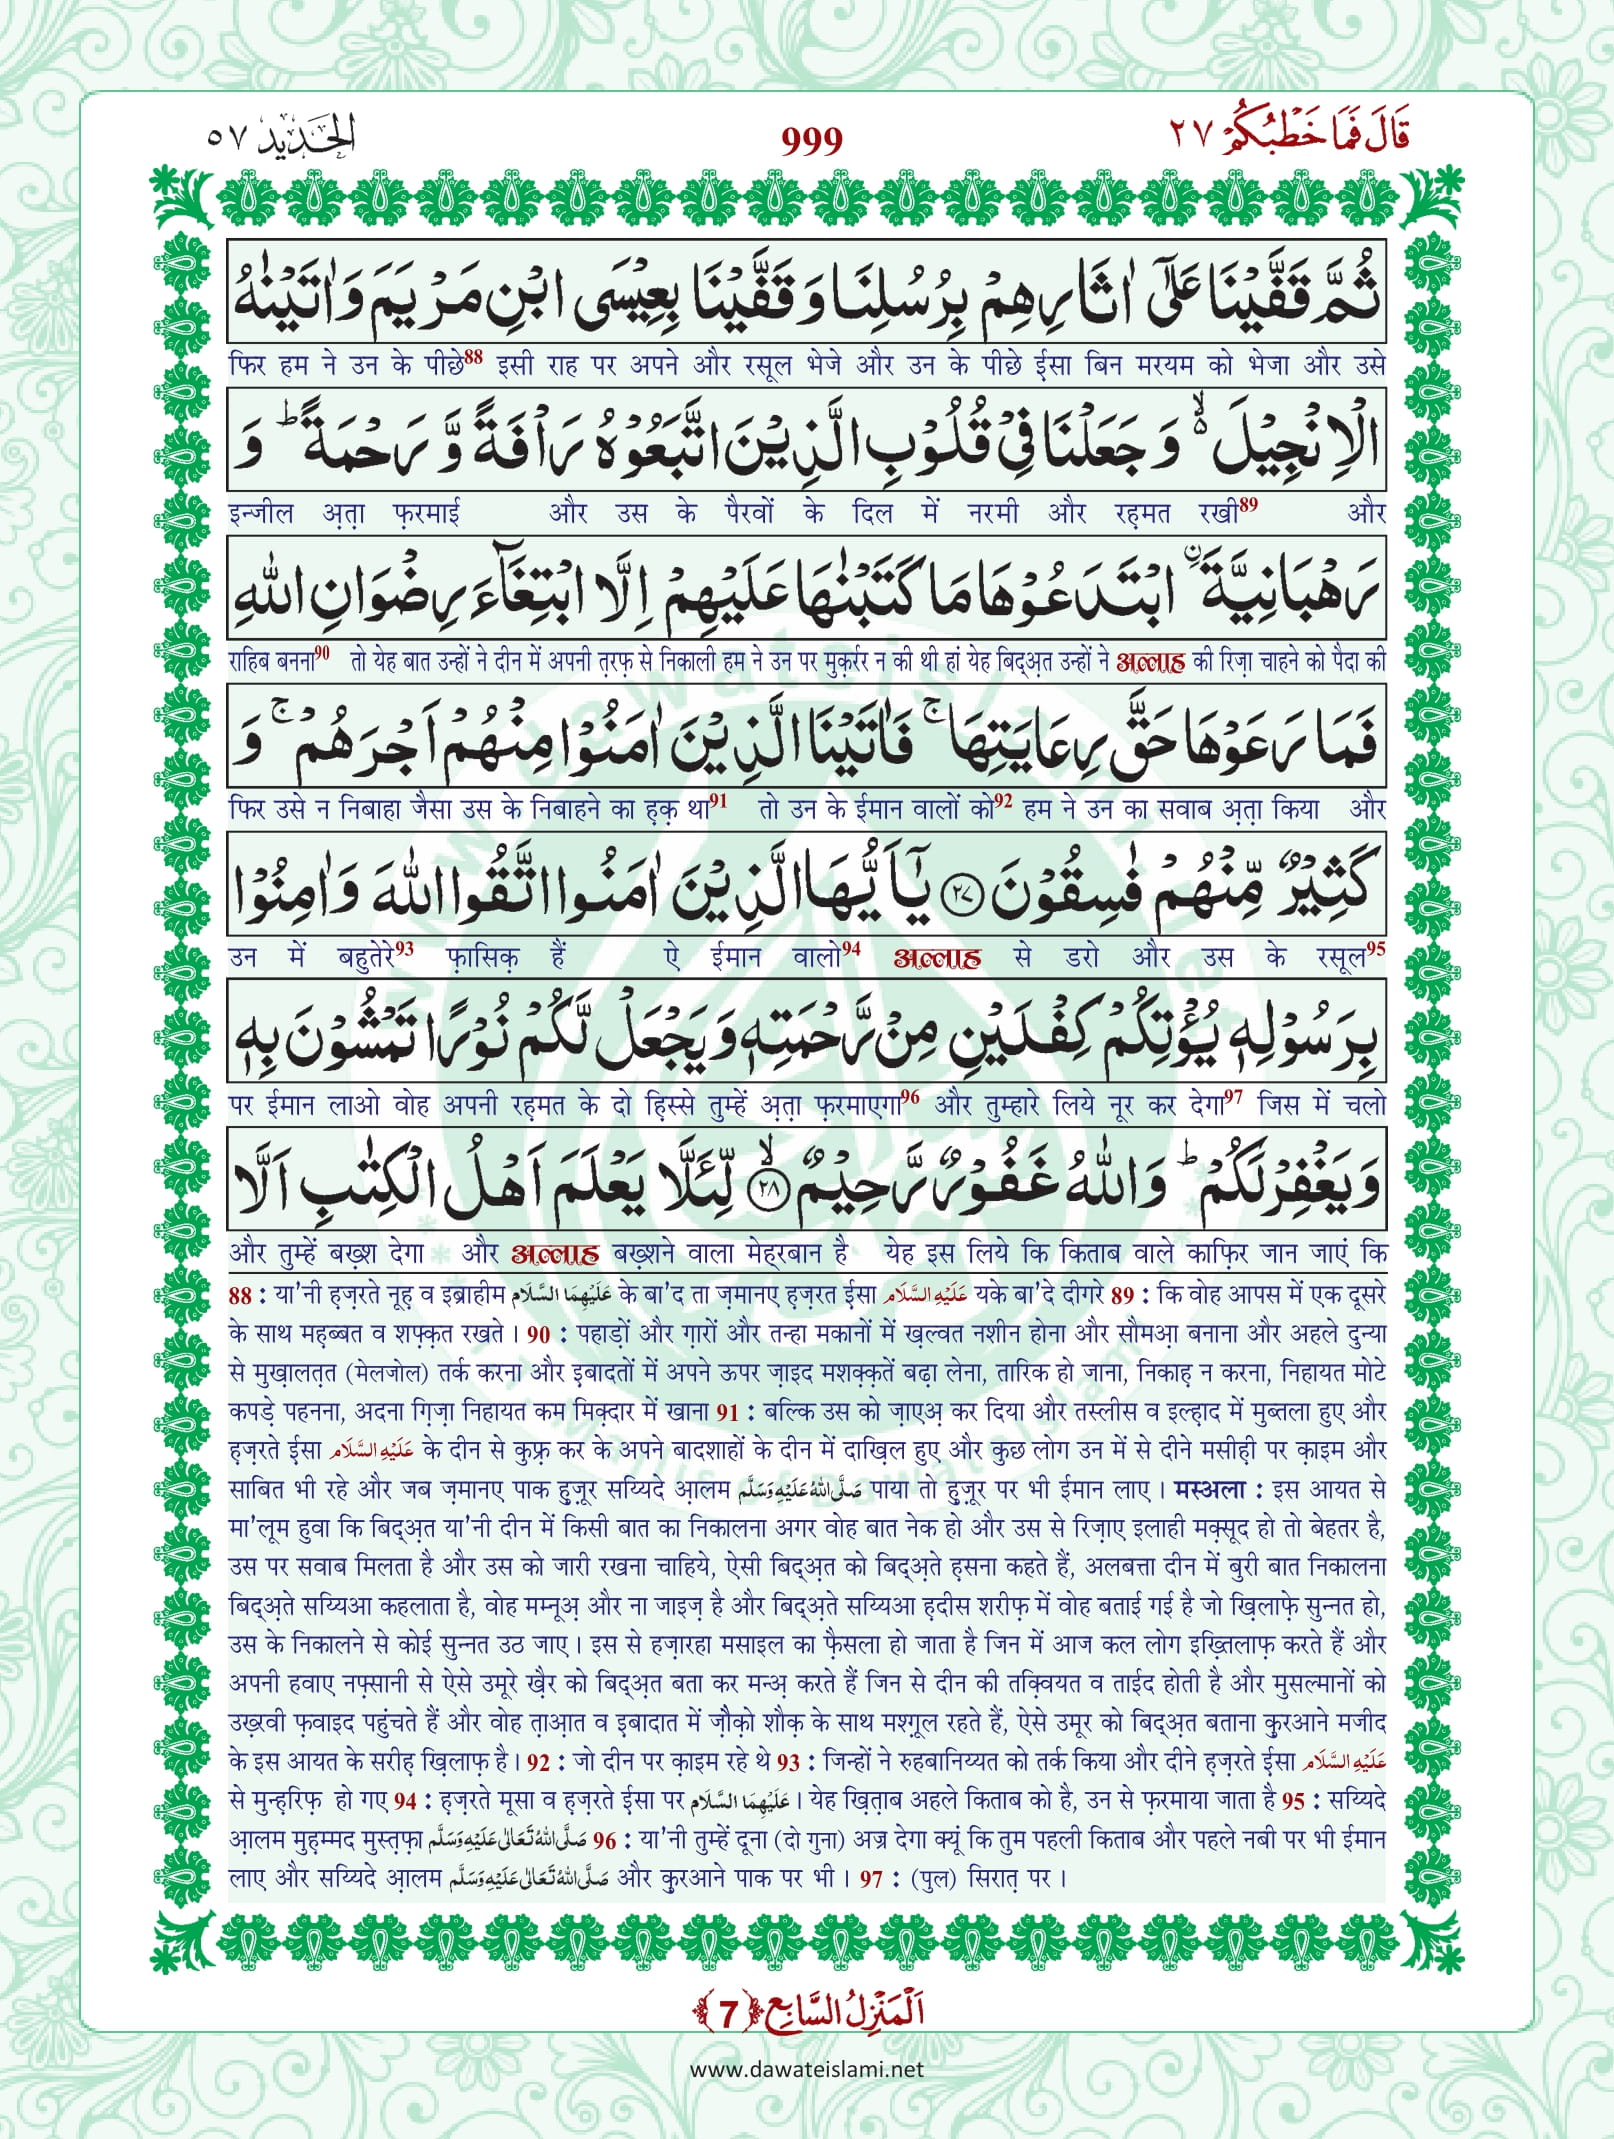 قَالَ فَمَا خَطْبُكُمْ ٢٧
999
الحديد ٥٧
ثُمَّ قَفَّيْنَا عَلٰۤى اٰثَارِهِمْ بِرُسُلِنَا وَ قَفَّيْنَا بِعِيْسَى ابْنِ مَرْيَمَ وَ اٰتَيْنٰهُ
फिर हम ने उन के पीछे88 इसी राह पर अपने और रसूल भेजे और उन के पीछे ईसा बिन मरयम को भेजा और उसे
الْاِنْجِيْلَ ۙ۬ وَ جَعَلْنَا فِيْ قُلُوْبِ الَّذِيْنَ اتَّبَعُوْهُ رَاْفَةً وَّ رَحْمَةً ؕ وَ
इन्जील अ़त़ा फ़रमाई और उस के पैरवों के दिल में नरमी और रह़मत रखी89 और
رَهْبَانِيَّةَ ۟ ابْتَدَعُوْهَا مَا كَتَبْنٰهَا عَلَيْهِمْ اِلَّا ابْتِغَآءَ رِضْوَانِ اللّٰهِ
राहिब बनना90 तो येह बात उन्हों ने दीन में अपनी त़रफ़ से निकाली हम ने उन पर मुक़र्रर न की थी हां येह बिद्अ़त उन्हों ने अल्लाह की रिज़ा चाहने को पैदा की
فَمَا رَعَوْهَا حَقَّ رِعَايَتِهَا ۚ فَاٰتَيْنَا الَّذِيْنَ اٰمَنُوْا مِنْهُمْ اَجْرَهُمْ ۚ وَ
फिर उसे न निबाहा जैसा उस के निबाहने का ह़क़ था91 तो उन के ईमान वालों को92 हम ने उन का सवाब अ़त़ा किया और
كَثِيْرٌ مِّنْهُمْ فٰسِقُوْنَ ۝٢٧ يٰۤاَيُّهَا الَّذِيْنَ اٰمَنُوا اتَّقُوا اللّٰهَ وَ اٰمِنُوْا
उन में बहुतेरे93 फ़ासिक़ हैं ऐ ईमान वालो94 अल्लाह से डरो और उस के रसूल95
بِرَسُوْلِهٖ يُؤْتِكُمْ كِفْلَيْنِ مِنْ رَّحْمَتِهٖ وَ يَجْعَلْ لَّكُمْ نُوْرًا تَمْشُوْنَ بِهٖ
पर ईमान लाओ वोह अपनी रह़मत के दो ह़िस्से तुम्हें अ़त़ा फ़रमाएगा96 और तुम्हारे लिये नूर कर देगा97 जिस में चलो
وَ يَغْفِرْ لَكُمْ ؕ وَ اللّٰهُ غَفُوْرٌ رَّحِيْمٌ ۙ۝٢٨ لِّئَلَّا يَعْلَمَ اَهْلُ الْكِتٰبِ اَلَّا
और तुम्हें बख़्श देगा और अल्लाह बख़्शने वाला मेह्रबान है येह इस लिये कि किताब वाले काफ़िर जान जाएं कि
88 : या'नी ह़ज़रते नूह़ व इब्राहीम عَلَيْهِمَا السَّلَام के बा'द ता ज़मानए ह़ज़रत ईसा عَلَيْهِ السَّلَام यके बा'दे दीगरे 89 : कि वोह आपस में एक दूसरे
के साथ मह़ब्बत व शफ़्क़त रखते । 90 : पहाड़ों और ग़ारों और तन्हा मकानों में ख़ल्वत नशीन होना और सौमआ़ बनाना और अहले दुन्या
से मुख़ालत़त (मेलजोल) तर्क करना और इ़बादतों में अपने ऊपर ज़ाइद मशक़्क़तें बढ़ा लेना, तारिक हो जाना, निकाह़ न करना, निहायत मोटे
कपड़े पहनना, अदना ग़िज़ा निहायत कम मिक़्दार में खाना 91 : बल्कि उस को ज़ाएअ़ कर दिया और तस्लीस व इल्ह़ाद में मुब्तला हुए और
ह़ज़रते ईसा عَلَيْهِ السَّلَام के दीन से कुफ़्र कर के अपने बादशाहों के दीन में दाख़िल हुए और कुछ लोग उन में से दीने मसीह़ी पर क़ाइम और
साबित भी रहे और जब ज़मानए पाक हु़ज़ूर सय्यिदे आ़लम صَلَّى اللهُ عَلَيْهِ وَسَلَّم पाया तो हु़ज़ूर पर भी ईमान लाए । मस्अला : इस आयत से
मा'लूम हुवा कि बिद्अ़त या'नी दीन में किसी बात का निकालना अगर वोह बात नेक हो और उस से रिज़ाए इलाही मक़्सूद हो तो बेहतर है,
उस पर सवाब मिलता है और उस को जारी रखना चाहिये, ऐसी बिद्अ़त को बिद्अ़ते ह़सना कहते हैं, अलबत्ता दीन में बुरी बात निकालना
बिद्अ़ते सय्यिआ कहलाता है, वोह मम्नूअ़ और ना जाइज़ है और बिद्अ़ते सय्यिआ ह़दीस शरीफ़ में वोह बताई गई है जो ख़िलाफ़े सुन्नत हो,
उस के निकालने से कोई सुन्नत उठ जाए । इस से हज़ारहा मसाइल का फ़ैसला हो जाता है जिन में आज कल लोग इख़्तिलाफ़ करते हैं और
अपनी हवाए नफ़्सानी से ऐसे उमूरे ख़ैर को बिद्अ़त बता कर मन्अ़ करते हैं जिन से दीन की तक़्वियत व ताईद होती है और मुसल्मानों को
उख़्रवी फ़वाइद पहुंचते हैं और वोह त़ाआ़त व इ़बादात में ज़ौक़ो शौक़ के साथ मश्ग़ूल रहते हैं, ऐसे उमूर को बिद्अ़त बताना क़ुरआने मजीद
के इस आयत के सरीह़ ख़िलाफ़ है । 92 : जो दीन पर क़ाइम रहे थे 93 : जिन्हों ने रुहबानिय्यत को तर्क किया और दीने ह़ज़रते ईसा عَلَيْهِ السَّلَام
से मुन्ह़रिफ़ हो गए 94 : ह़ज़रते मूसा व ह़ज़रते ईसा पर عَلَيْهِمَا السَّلَام । येह ख़ित़ाब अहले किताब को है, उन से फ़रमाया जाता है 95 : सय्यिदे
आ़लम मुह़म्मद मुस्त़फ़ा صَلَّى اللهُ تَعَالٰى عَلَيْهِ وَسَلَّم 96 : या'नी तुम्हें दूना (दो गुना) अज्र देगा क्यूं कि तुम पहली किताब और पहले नबी पर भी ईमान
लाए और सय्यिदे आ़लम صَلَّى اللهُ تَعَالٰى عَلَيْهِ وَسَلَّم और क़ुरआने पाक पर भी । 97 : (पुल) सिरात़ पर ।
اَلْمَنْزِلُ السَّابِع ﴿7﴾
www.dawateislami.net